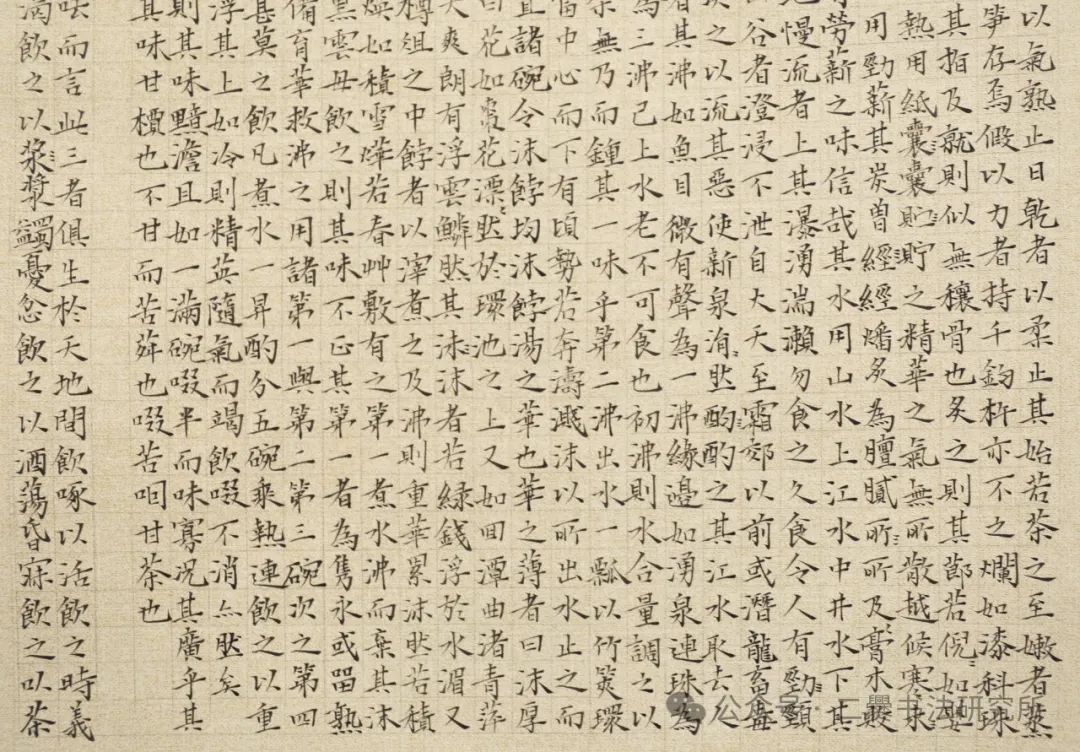 以氣熟止日乾者以柔止其始若茶之至嫩者蒸
筍存焉假以力者持千鈞杵亦不之爛如漆科珠
其指及就則似無穰骨也炙之則其節若倪如嬰
熱用紙囊囊貯貯之精華之氣無所散越候寒末
用勁薪其炭曾經經燔炙為膻膩所所及膏木敗
勞薪之味信哉其水用山水上江水中井水下其
慢流者上其瀑湧湍瀨勿食之久食令人有勁頸
谷者澄浸不泄自火天至霜郊以前或潛龍畜毒
決之以流其惡使新泉涓然酌酌之其江水取去
者其沸如魚目微有聲為一沸緣邊如湧泉連珠為
為三沸已上水老不可食也初沸則水合量調之以
無乃而鍾其一味乎第二沸出水一瓢以竹筴環
當中心而下有頃勢若奔濤濺沫以所出水止之而
置諸碗令沫餑均沫餑湯之華也華之薄者曰沫厚
曰花如棗花漂然於環池之上又如回潭曲渚青萍
天爽朗有浮雲鱗然其沫沫者若綠錢浮於水湄又
樽俎之中餑者以滓煮之及沸則重華累沫然若積
煥如積雪燁若春艸敷有之第一煮水沸而棄其沫
黑雲母飲之則其味不正其第一者為雋永或留熟
備育華救沸之用諸第一與第二第三碗次之第四
甚莫之飲凡煮水一升酌分五碗乘熱連飲之以重
浮其上如冷則精英隨氣而竭飲啜不消亦然矣
則其味黯澹且如一滿碗啜半而味寡況其廣乎其
其味甘檟也不甘而苦荈也啜苦咽甘茶也
呿而言此三者俱生於天地間飲啄以活飲之時義
渴飲之以漿漿蠲憂忿飲之以酒蕩昏寐飲之以茶
公众号 · 二爨书法研究所